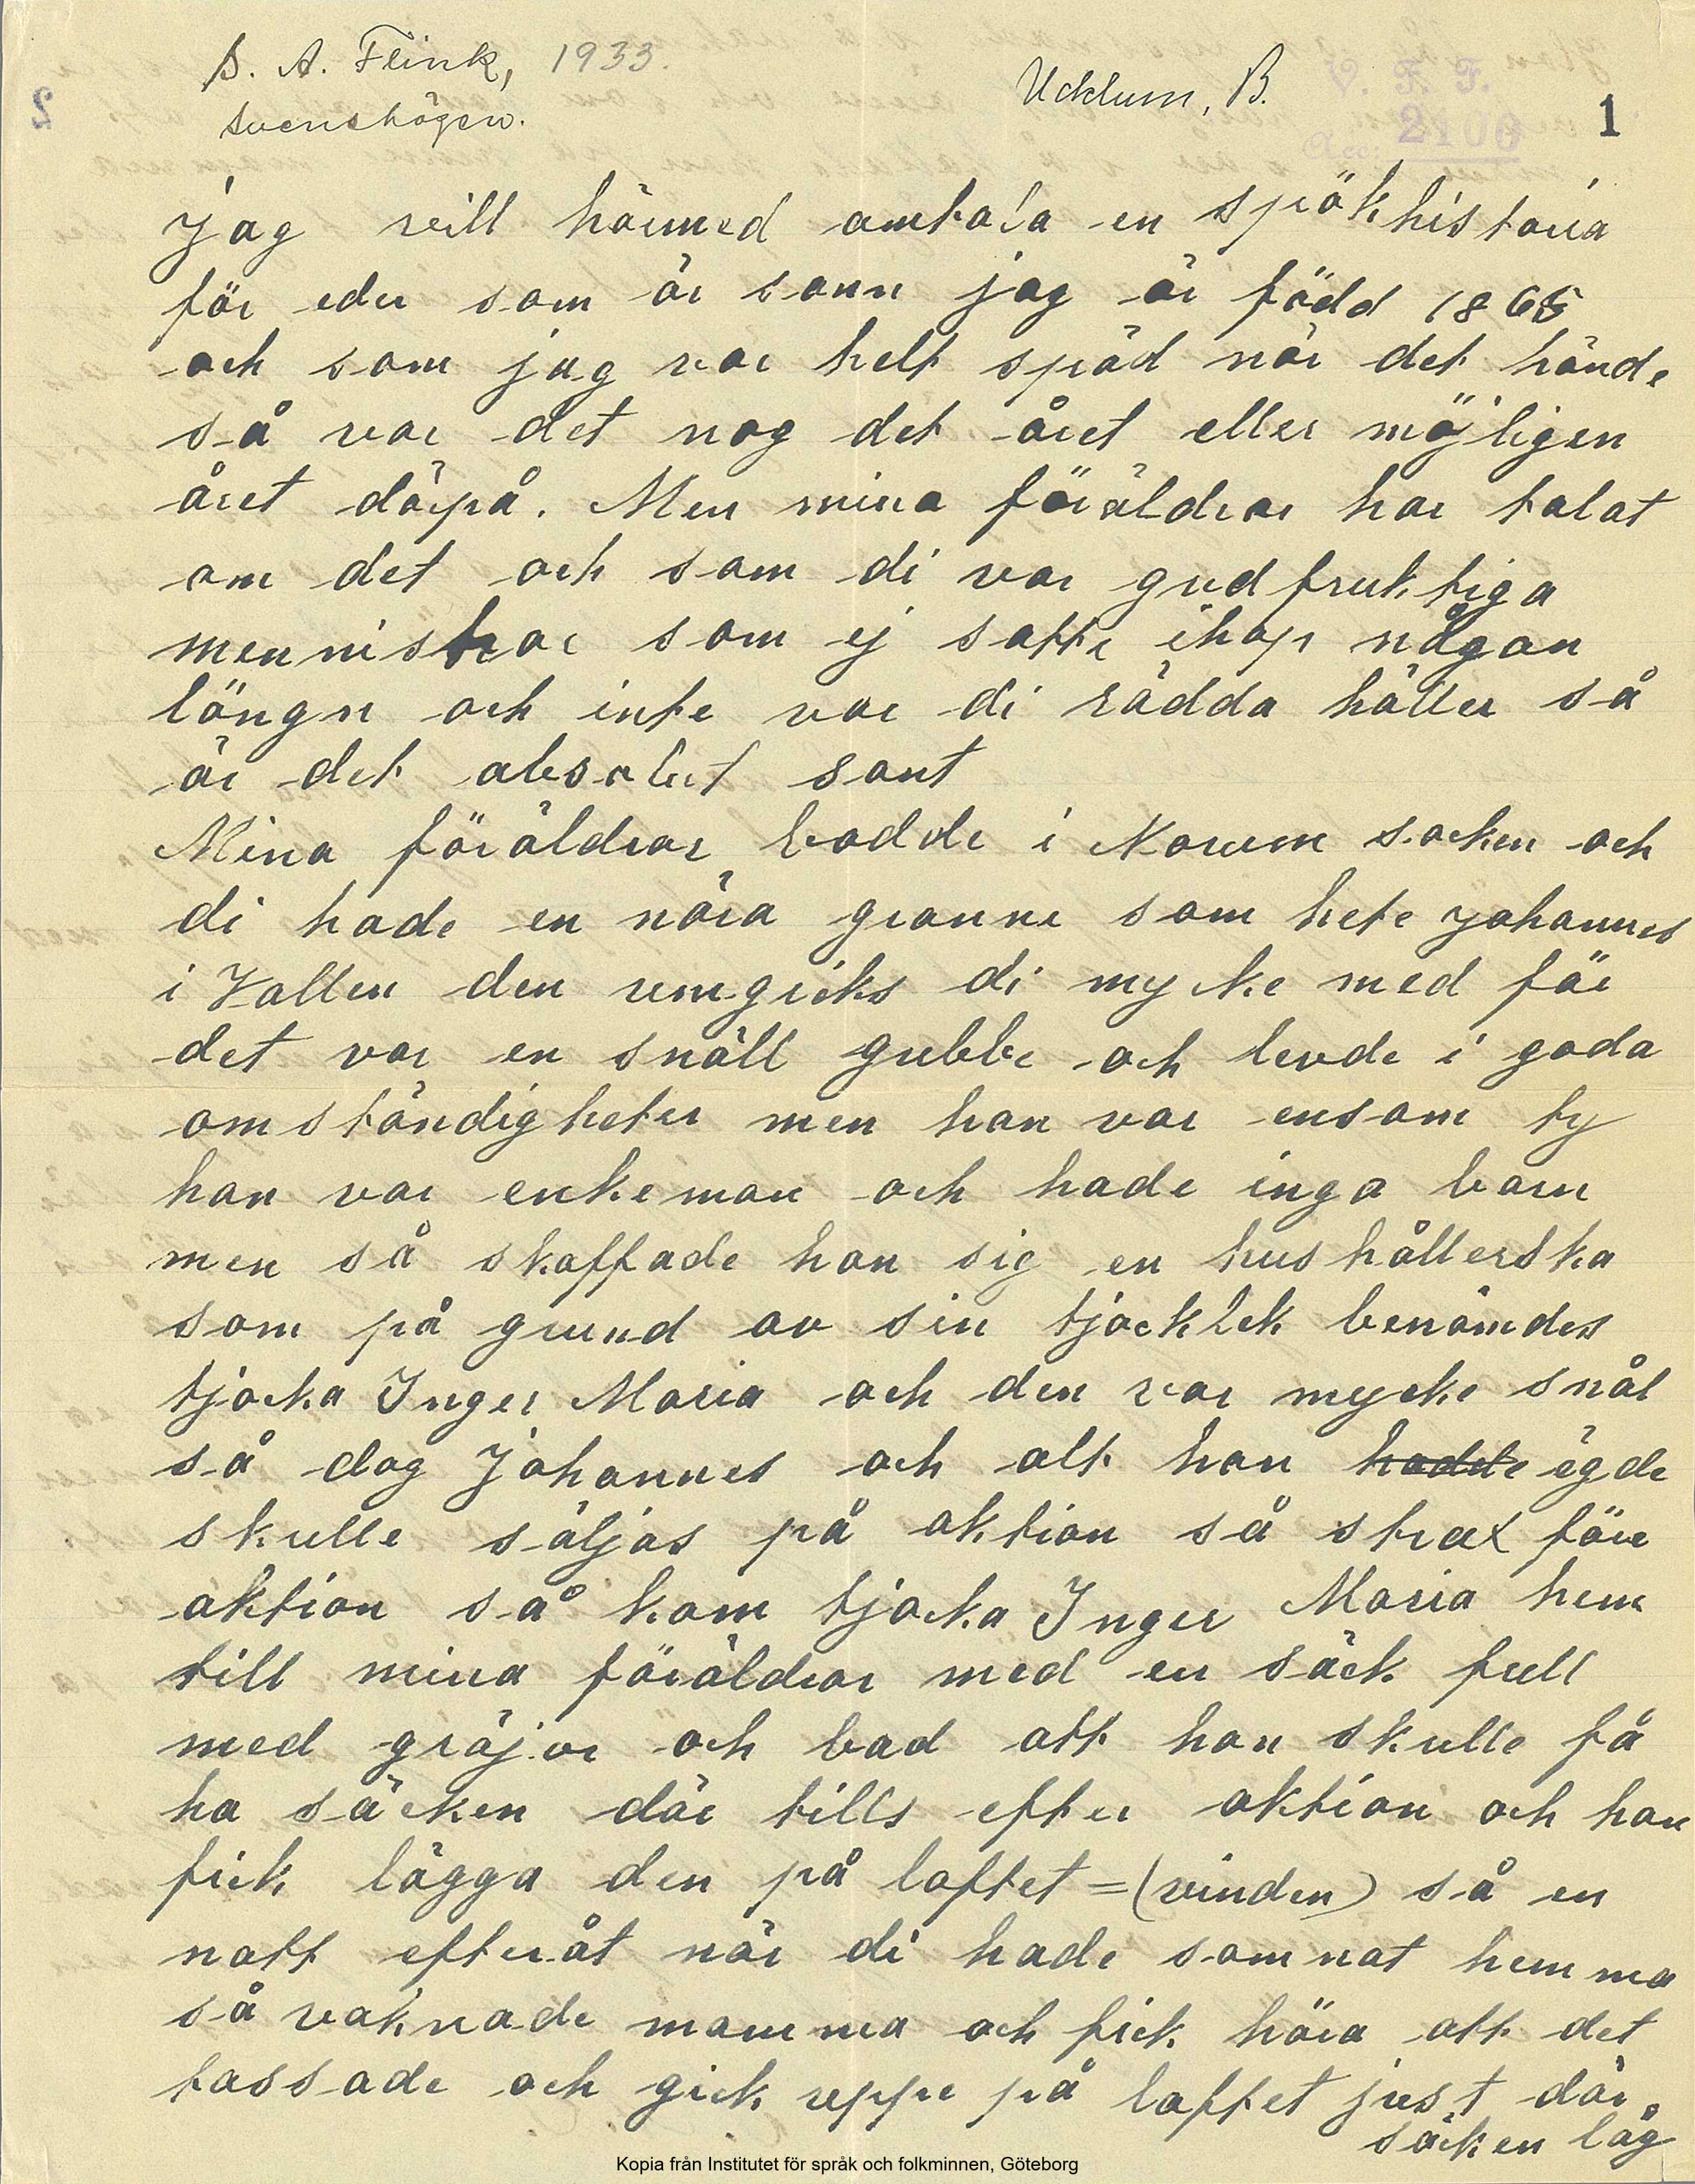 B. A. Flink, 1933.
Svenshögen.
Ucklum, B.
V. F. F.
Acc: 2100
1
jag vill härmed omtala en spökhistoria
för eder som är sann jag är född 1865
och som jag var helt späd när det hände
så var det nog det året eller möjligen
året därpå. Men mina föräldrar har talat
om det och som di var gudfruktiga
menniskor som ej satte ihop någon
löngn och inte var di rädda häller så
är det absolut sant
Mina föräldrar bodde i Norum socken och
di hade en nära granne som hete johannes
i Vallen den umgicks di mycke med för
det var en snäll gubbe och levde i goda
omständigheter men han var ensam ty
han var enkeman och hade inga barn
men så skaffade han sig en hushållerska
som på grund av sin tjocklek benämdes
tjocka Inger Maria och den var mycke snål
så dog Johannes och alt han hadde ägde
skulle säljas på aktion så strax före
aktion så kom tjocka Inger Maria hem
till mina föräldrar med en säck full
med gräjor och bad att hon skulle få
ha säcken där tills efter aktion och hon
fick lägga den på loftet = (vinden) så en
natt efteråt när di hade somnat hemma
så vaknade mamma och fick höra att det
tassade och gick uppe på loftet just där
säcken låg
Kopia från Institutet för språk och folkminnen, Göteborg